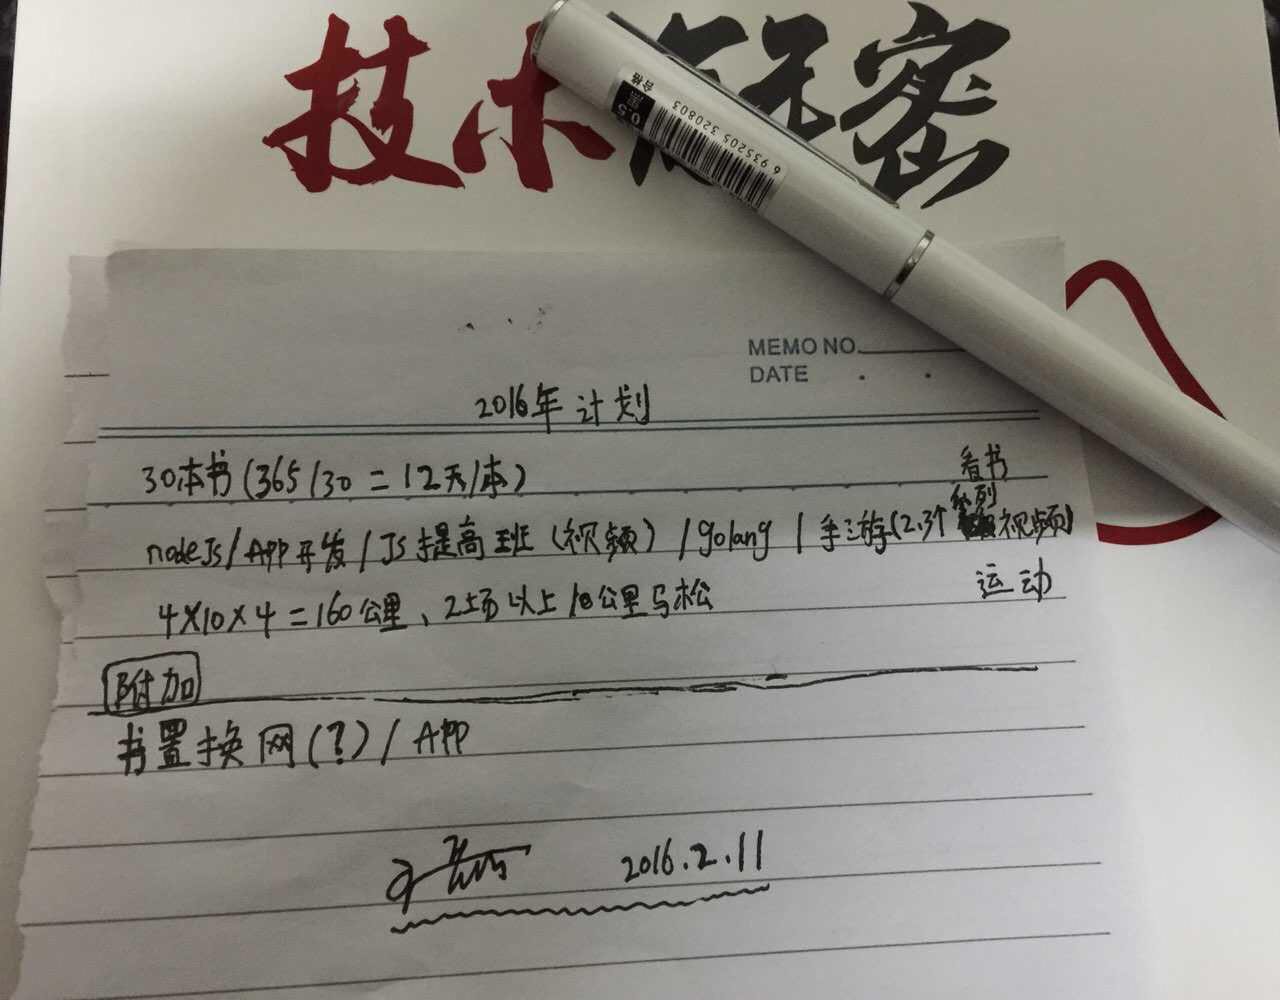 技术 密
合格
黑
0.5
6 935205 320803
MEMO NO.
DATE . .
2016年计划
30本书(365/30=12天/本) 看书
系列
nodeJs/APP开发/Js提高班(视频)/golang/手游(2,3个视频)
4×10×4=160公里、2场以上10公里马松 运动
附加
书置换网(?)/APP
2016.2.11